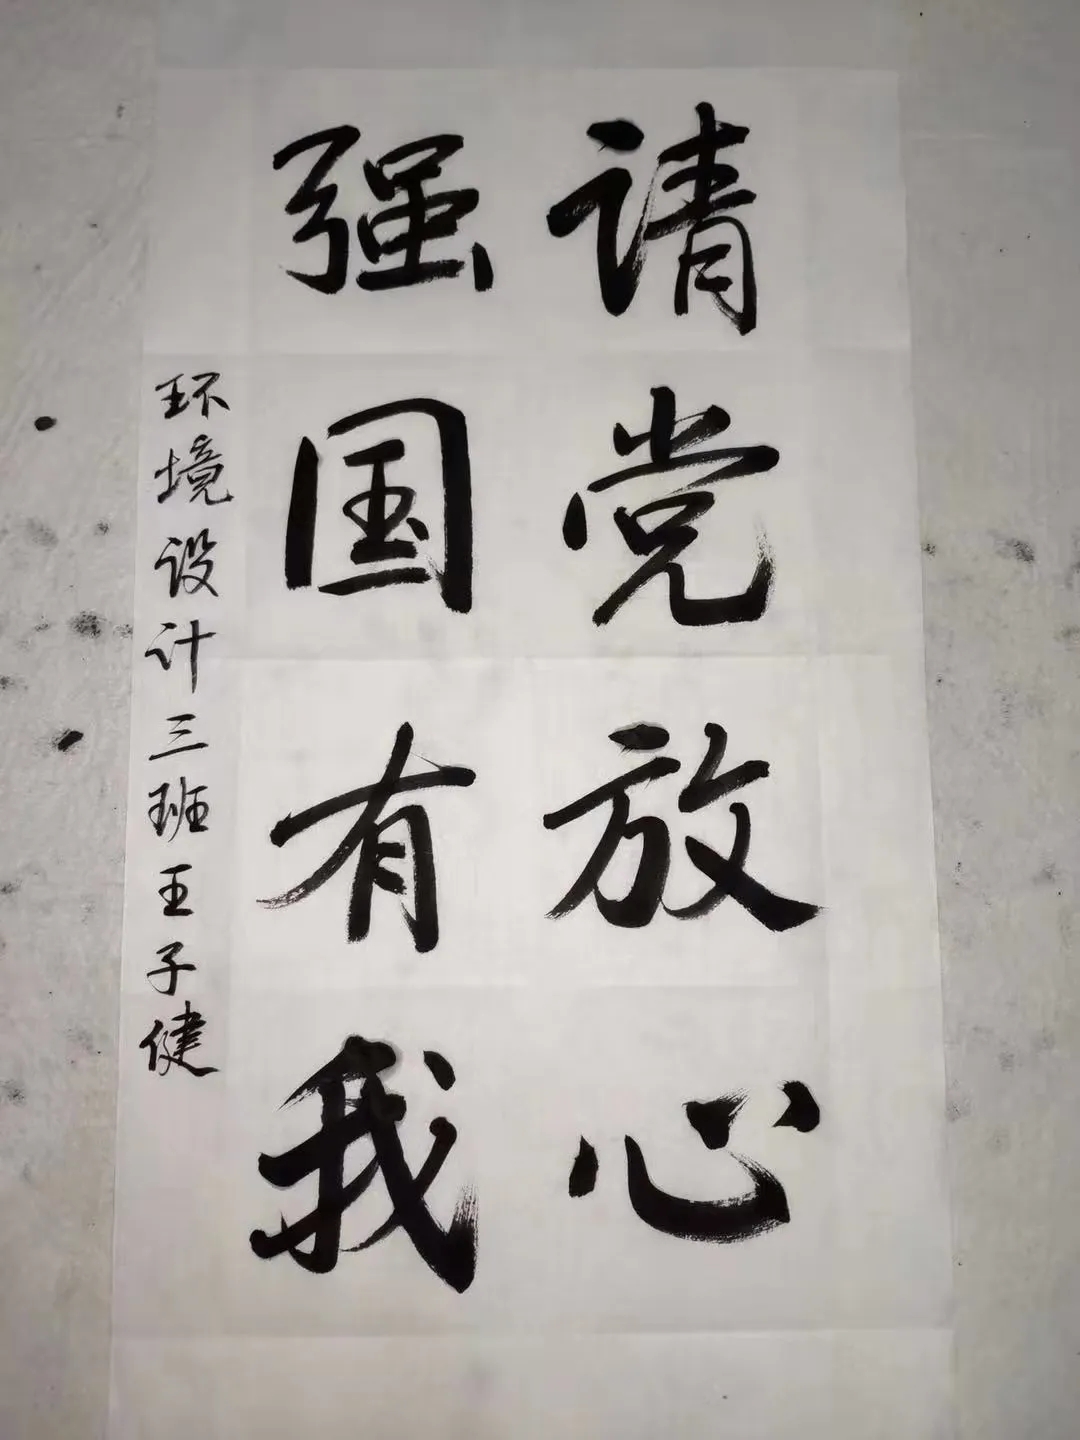 请党放心
强国有我
环境设计三班王子健